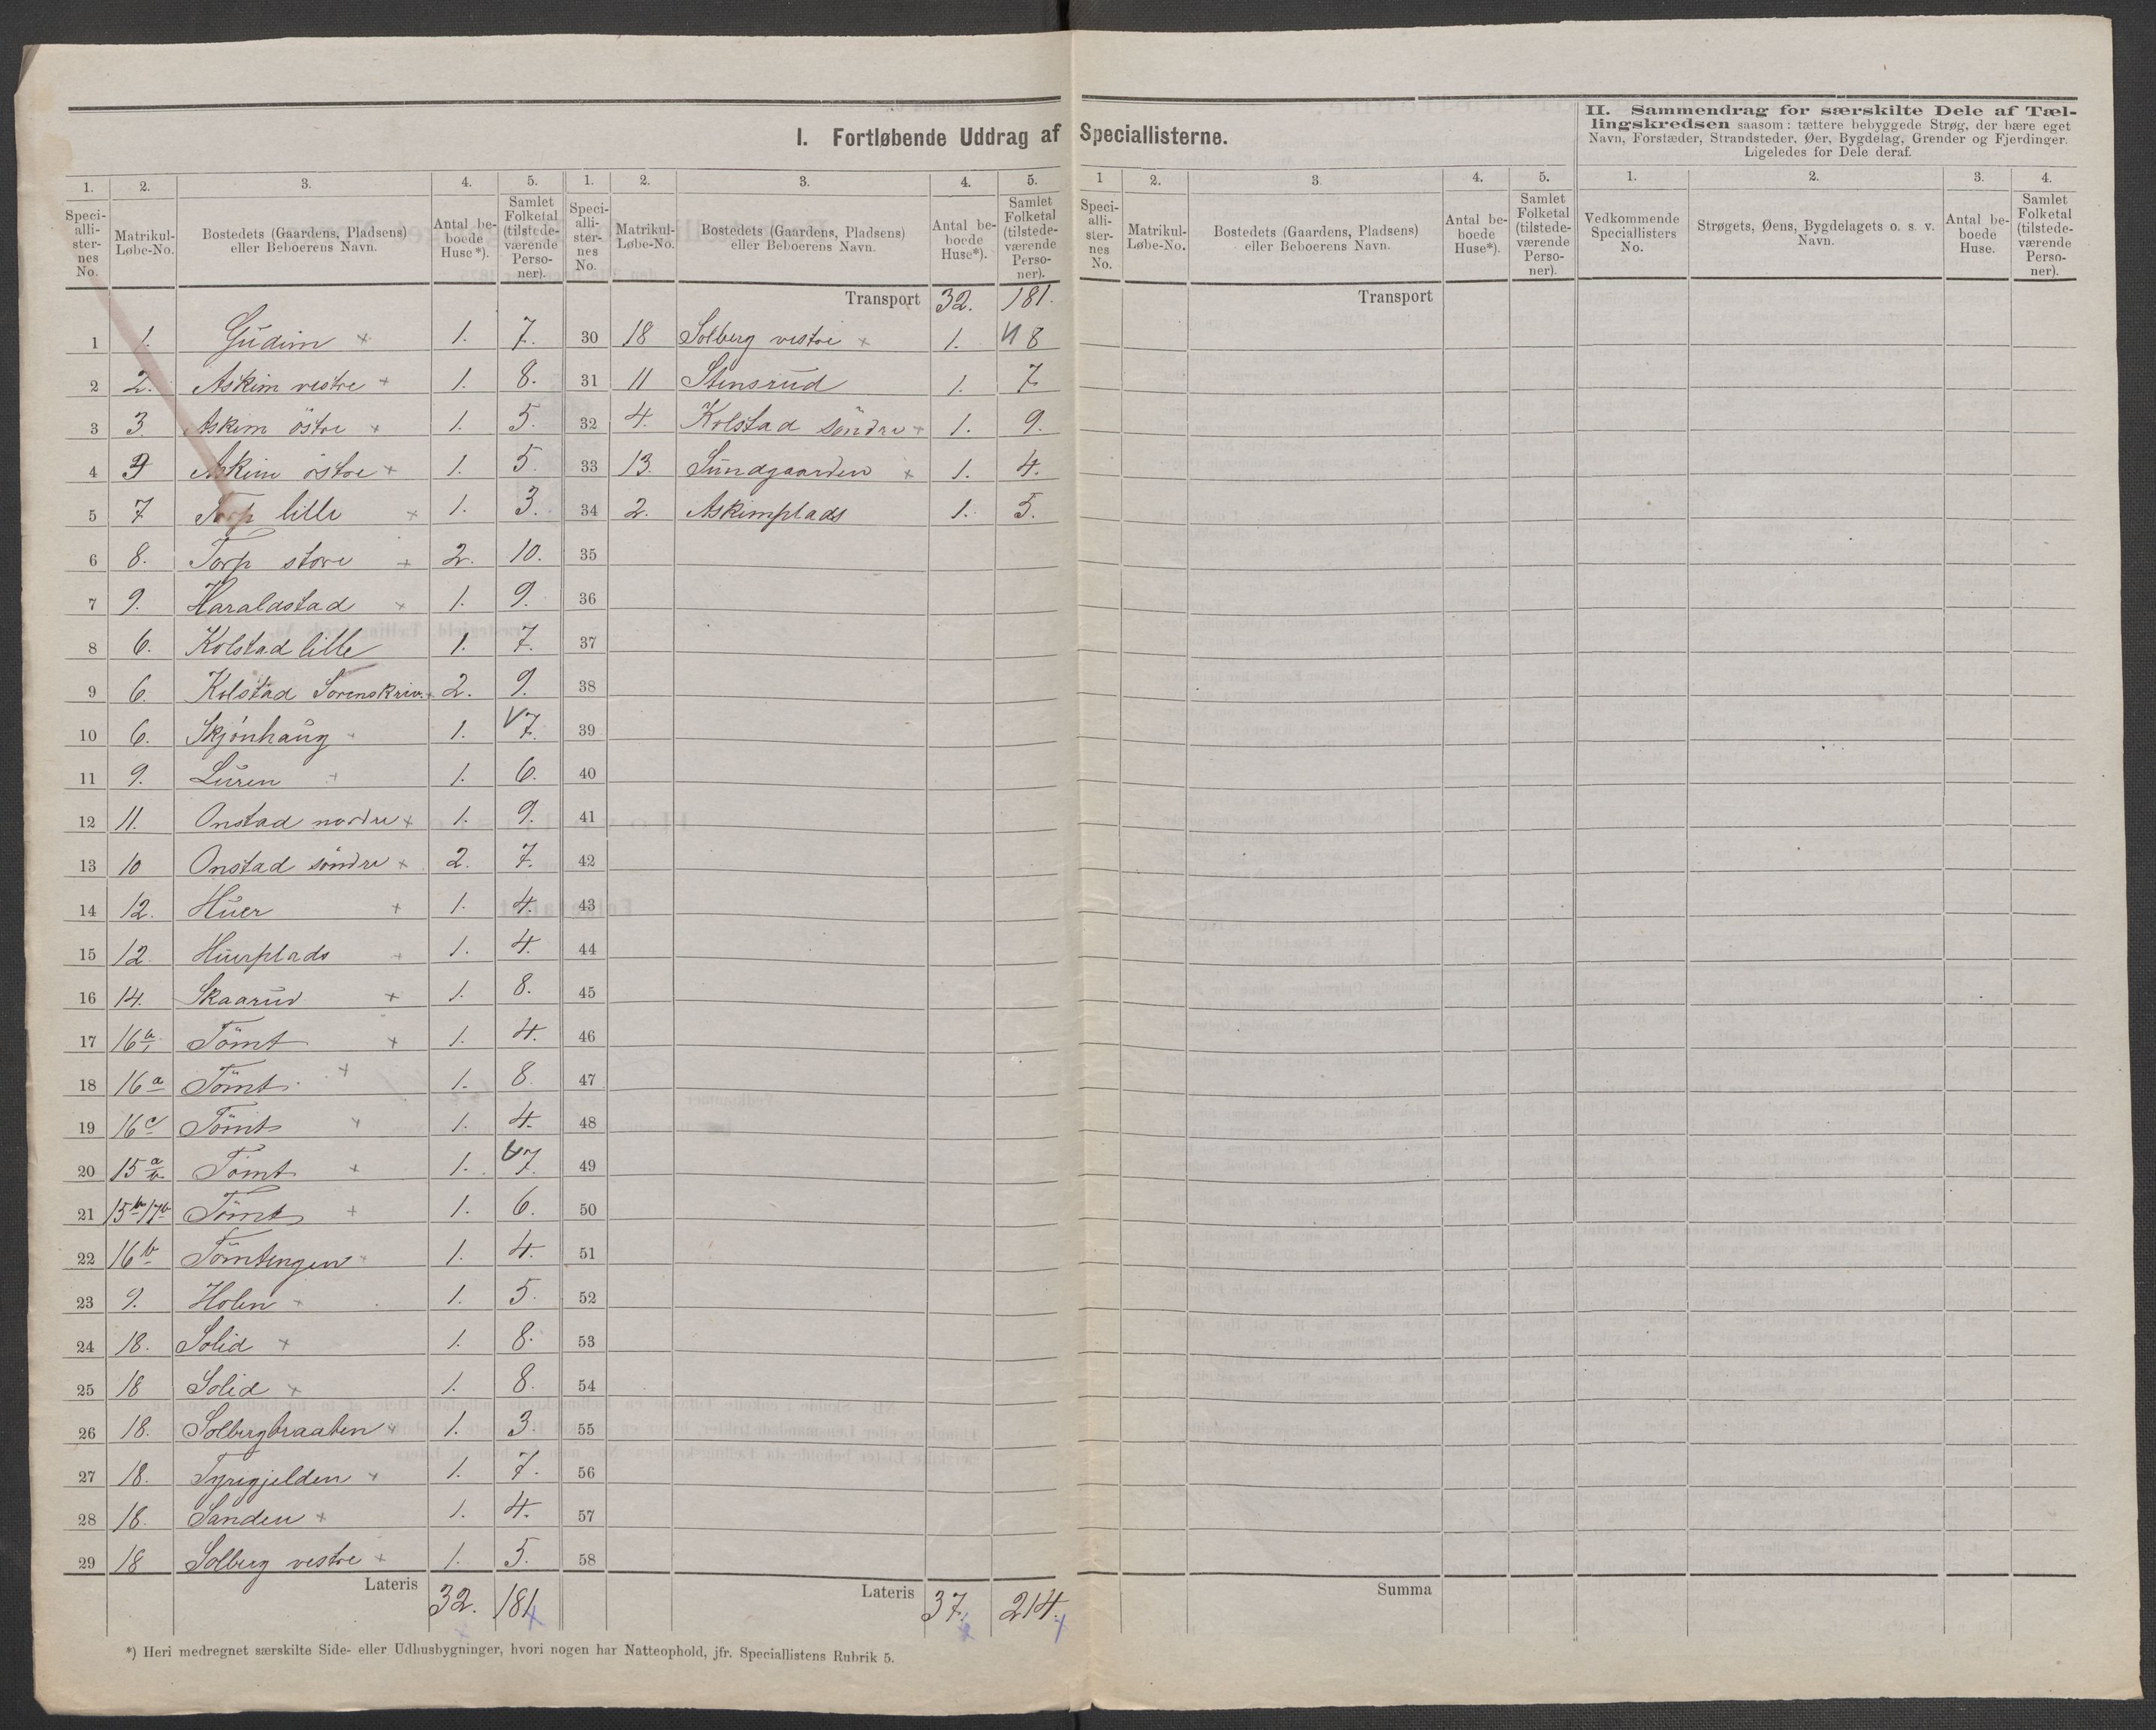 I. Fortløbende Uddrag af Speciallisterne.
II. Sammendrag for særskilte Dele af Tæl-
lingskredsen saasom: tættere bebyggede Strøg, der bære eget
Navn, Forstæder, Strandsteder, Øer, Bygdelag, Grender og Fjerdinger.
Ligeledes for Dele deraf.
1. 2. 3. 4. 5. 1. 2. 3. 4. 5. 1 2. 3. 4. 5. 1. 2. 3. 4.
Speci-alli-ster-nes No. Matrikul-Løbe-No. Bostedets (Gaardens, Pladsens) eller Beboerens Navn. Antal be-boede Huse*). Samlet Folketal (tilstede-værende Perso-ner).
Speci-alli-ster-nes No. Matrikul-Løbe-No. Bostedets (Gaardens, Pladsens) eller Beboerens Navn. Antal be-boede Huse*). Samlet Folketal (tilstede-værende Perso-ner).
Speci-alli-ster-nes No. Matrikul-Løbe-No. Bostedets (Gaardens, Pladsens) eller Beboerens Navn. Antal be-boede Huse*). Samlet Folketal (tilstede-værende Perso-ner).
Vedkommende Speciallisters No. Strøgets, Øens, Bygdelagets o. s. v. Navn. Antal be-boede Huse. Samlet Folketal (tilstede-værende Perso-ner).
1 1. Gudim × 1. 7.
2 2. Askim vestre × 1. 8.
3 3 Askim östre × 1. 5.
4 3 Askim östre × 1. 5.
5 7 Torp lille × 1. 3.
6 8. Torp store × 2. 10.
7 9. Haraldstad × 1. 9.
8 6. Kolstad lille 1. 7.
9 6. Kolstad Sorenskriv. × 2. 9.
10 6. Skjönhaug × 1. 7.
11 9. Luren × 1. 6.
12 11. Onstad nordre × 1. 9.
13 10 Onstad söndre × 2. 7.
14 12. Huer × 1. 4.
15 12. Huerplads × 1. 4.
16 14. Skaarud × 1. 8.
17 16 Tömt × 1. 4.
18 16a Tömt × 1. 8.
19 16c Tömt × 1. 4.
20 15 Tömt × 1. 7.
21 15 17 Tömt × 1. 6.
22 16b Tömtengen × 1. 4.
23 9. Holen × 1. 5.
24 18. Solid × 1. 8.
25 18 Solid × 1. 8.
26 18. Solbergbraaten × 1. 3.
27 18. Tyregjelden × 1. 7.
28 18. Sanden × 1. 4.
29 18 Solberg vestre × 1. 5.
Lateris 32. 181
Transport 32. 181.
30 18 Solberg vestre × 1. 8
31 11 Stensrud 1. 7
32 4. Kolstad söndre × 1. 9.
33 13. Sundgaarden × 1. 4.
34 2. Askimplads 1. 5.
35
36
37
38
39
40
41
42
43
44
45
46
47
48
49
50
51
52
53
54
55
56
57
58
Lateris 37. 214.
Transport
Summa
*) Heri medregnet særskilte Side- eller Udhusbygninger, hvori nogen har Natteophold, jfr. Speciallistens Rubrik 5.